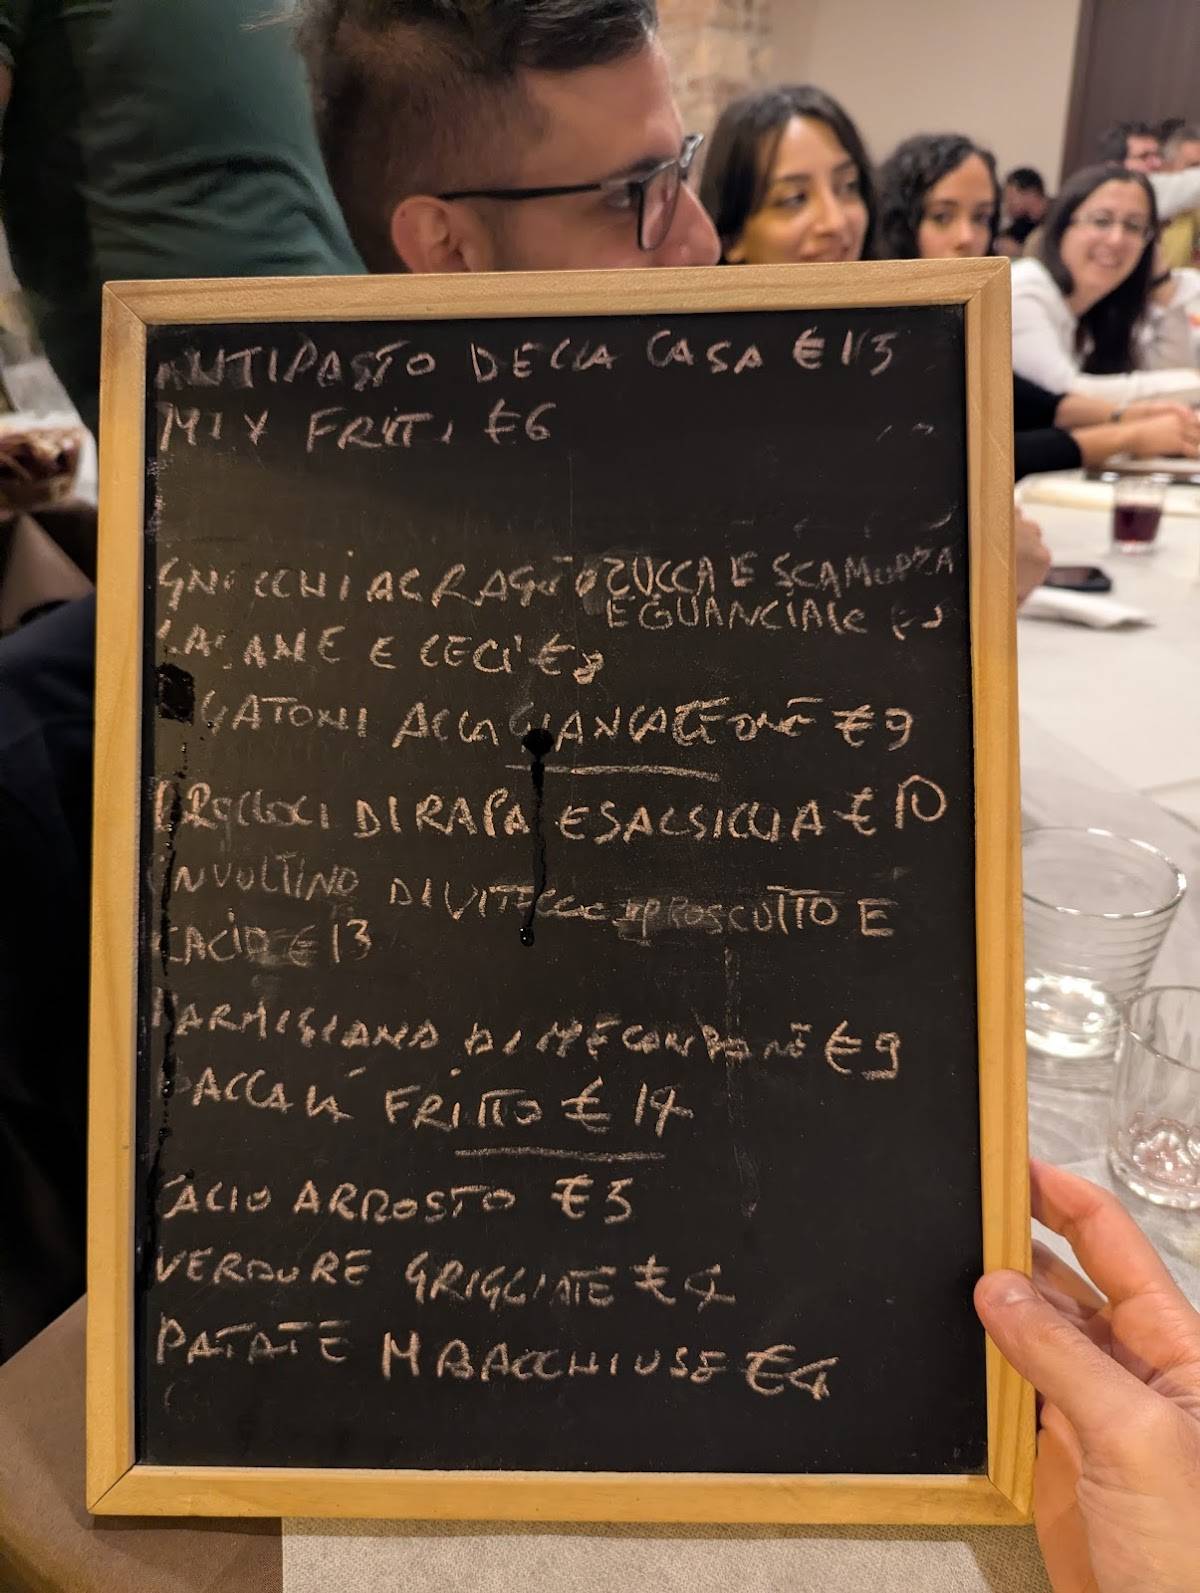 ANTIPASTO DELLA CASA €15
MIX FRITTI €6
GNOCCHI AL RAGÙ ZUCCA E SCAMORZA
E GUANCIALE
LAGANE E CECI €8
RIGATONI ALLA GIANCALEONE €9
BROCCOLI DI RAPA E SALSICCIA €10
INVOLTINO DI VITELLO PROSCUTTO E
CACIO €13
PARMIGIANA DI MELANZANE €9
BACCALÀ FRITTO €14
CACIO ARROSTO €5
VERDURE GRIGLIATE €4
PATATE MBACCHIUSE €4